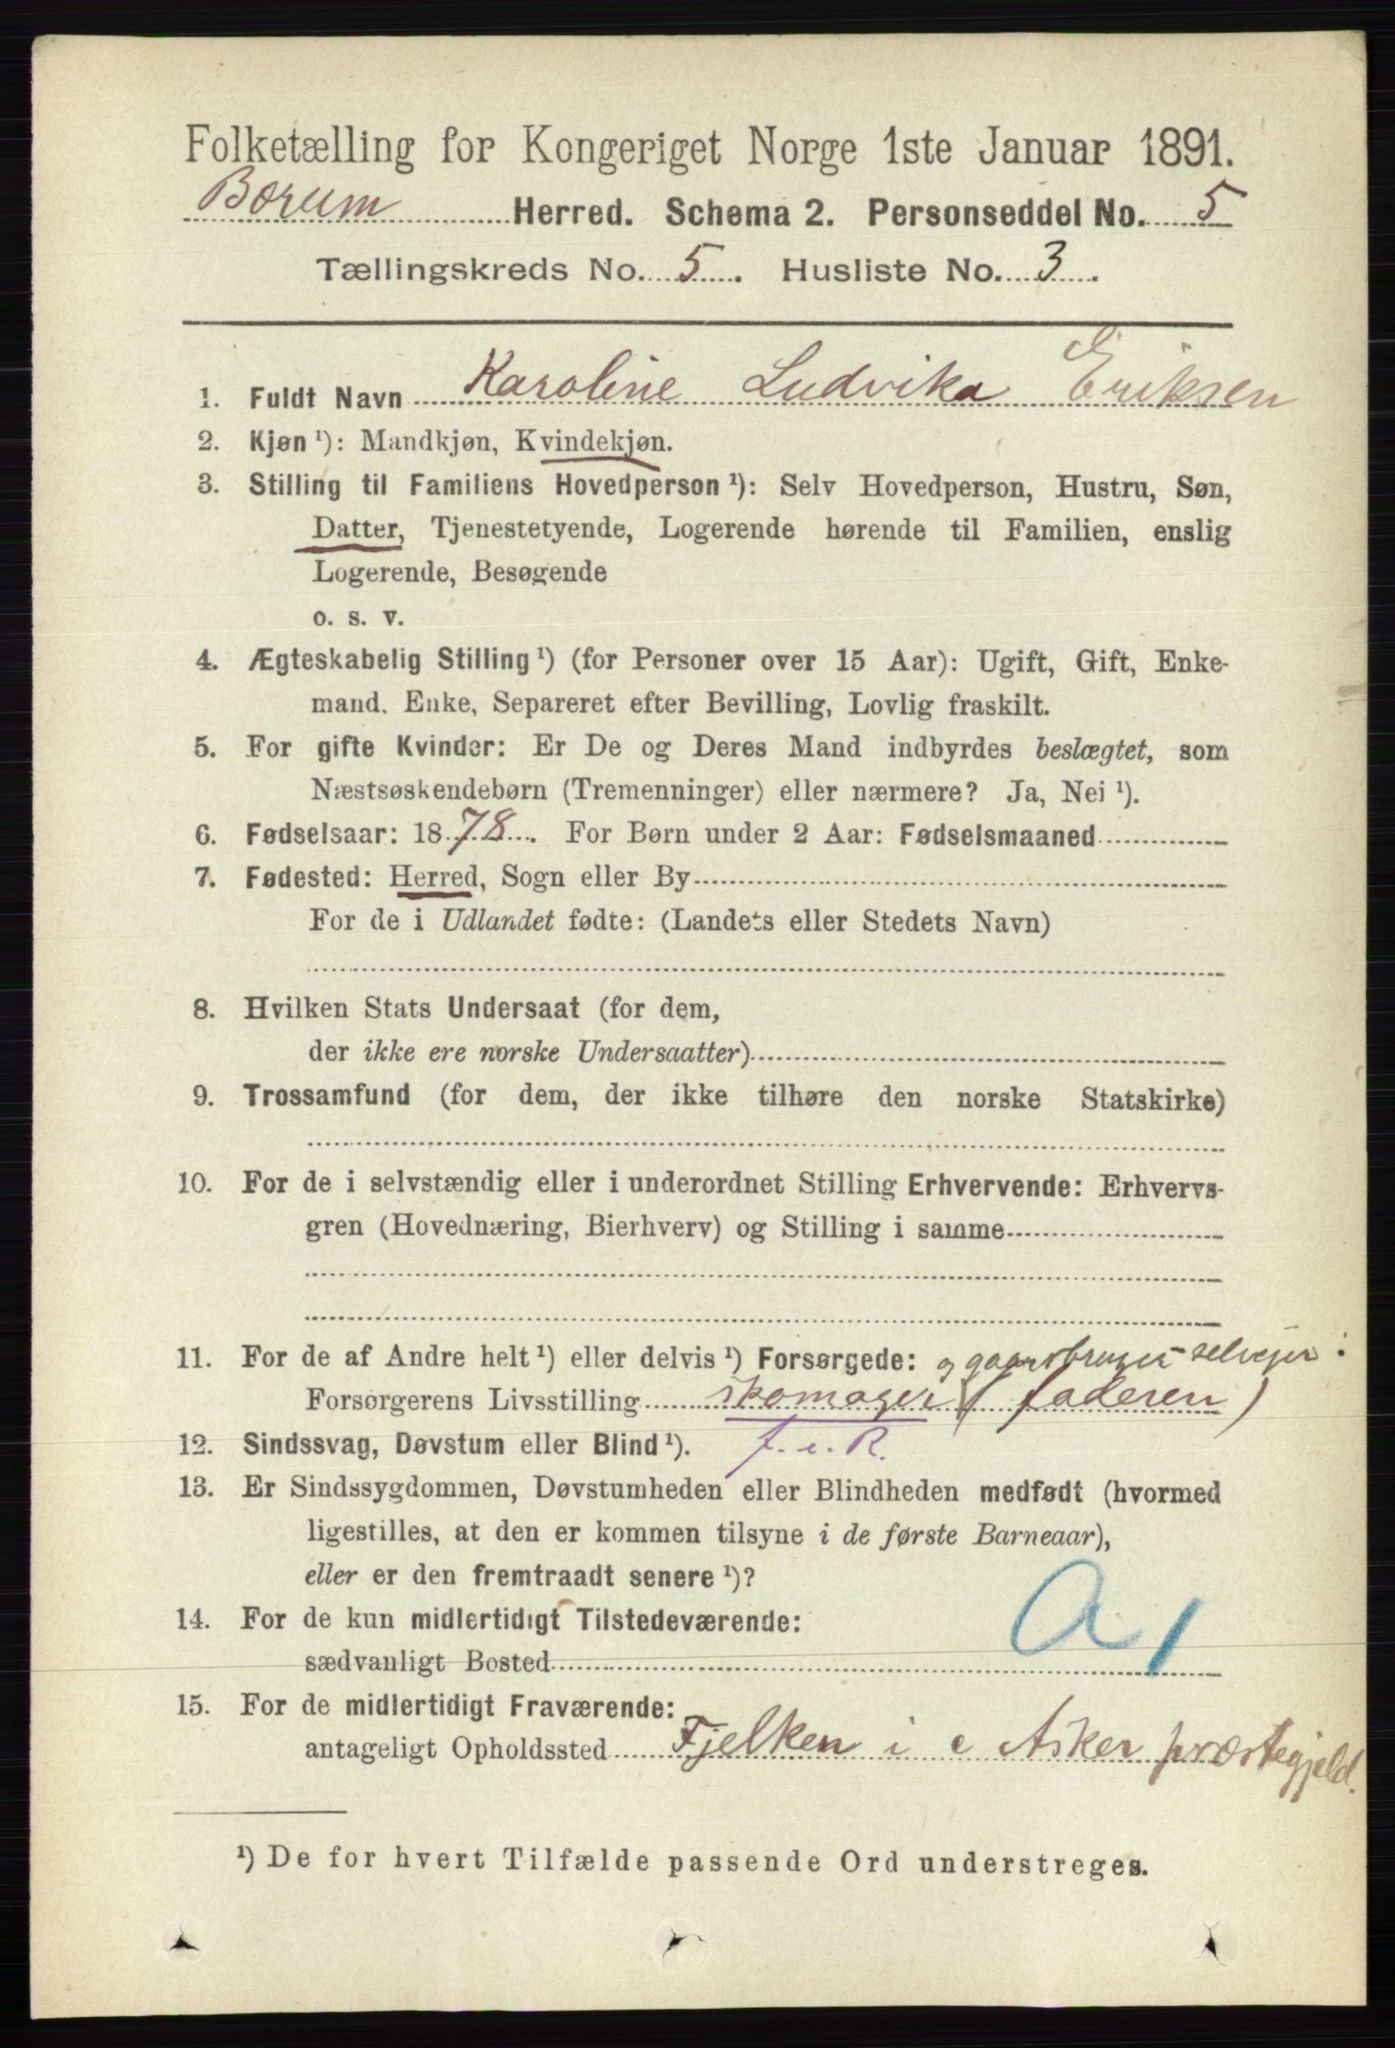 Folketælling for Kongeriget Norge 1ste Januar 1891.
Bærum Herred. Schema 2. Personseddel No. 5
Tællingskreds No. 5. Husliste No. 3.
1. Fuldt Navn Karoline Ludvika Eriksen
2. Kjøn ¹): Mandkjøn, Kvindekjøn.
3. Stilling til Familiens Hovedperson ¹): Selv Hovedperson, Hustru, Søn,
Datter, Tjenestetyende, Logerende hørende til Familien, enslig
Logerende, Besøgende
o. s. v.
4. Ægteskabelig Stilling ¹) (for Personer over 15 Aar): Ugift, Gift, Enke-
mand, Enke, Separeret efter Bevilling, Lovlig fraskilt.
5. For gifte Kvinder: Er De og Deres Mand indbyrdes beslægtet, som
Næstsøskendebørn (Tremenninger) eller nærmere? Ja, Nei ¹).
6. Fødselsaar: 1878. For Børn under 2 Aar: Fødselsmaaned
7. Fødested: Herred, Sogn eller By
For de i Udlandet fødte: (Landets eller Stedets Navn)
8. Hvilken Stats Undersaat (for dem,
der ikke ere norske Undersaatter)
9. Trossamfund (for dem, der ikke tilhøre den norske Statskirke)
10. For de i selvstændig eller i underordnet Stilling Erhvervende: Erhvervs-
gren (Hovednæring, Bierhverv) og Stilling i samme
11. For de af Andre helt ¹) eller delvis ¹) Forsørgede: og gaardbruger-selveier:
Forsørgerens Livsstilling skomager (faderen)
12. Sindssvag, Døvstum eller Blind ¹). f. u. R.
13. Er Sindssygdommen, Døvstumheden eller Blindheden medfødt (hvormed
ligestilles, at den er kommen tilsyne i de første Barneaar),
eller er den fremtraadt senere ¹)?
14. For de kun midlertidigt Tilstedeværende: A 1
sædvanligt Bosted
15. For de midlertidigt Fraværende:
antageligt Opholdssted Fjelken i Asker præstegjeld.
¹) De for hvert Tilfælde passende Ord understreges.